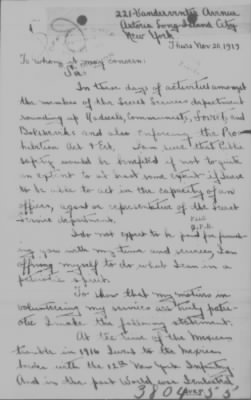 221 Vandeventer Avenue
Astoria Long Island City
New York
Thurs Nov 20, 1919
To whom it may concern:
Sir
In these days of activities amongst
the member of the Secret Service department
rounding up Radicals, Communists, Soviets, and
Bolsheviks and also enforcing the Pro-
hibition Act & Ect. I am sure that Public
safety would be benefited if not to quite
an extent to at least some extent if I were
to be able to act in the capacity of an
officer, agent or representative of the Secret
Service department.
I do not expect to be paid for furnish-
ing you with my time and services, I am
offering myself to do what I can in a
patriotic spirit.
To show that my motives in
volunteering my services are truly patri-
otic I make the following statement.
At the time of the Mexican
trouble in 1916 I went to the Mexican
border with the 12th New York Infantry
And in the past World War I enlisted